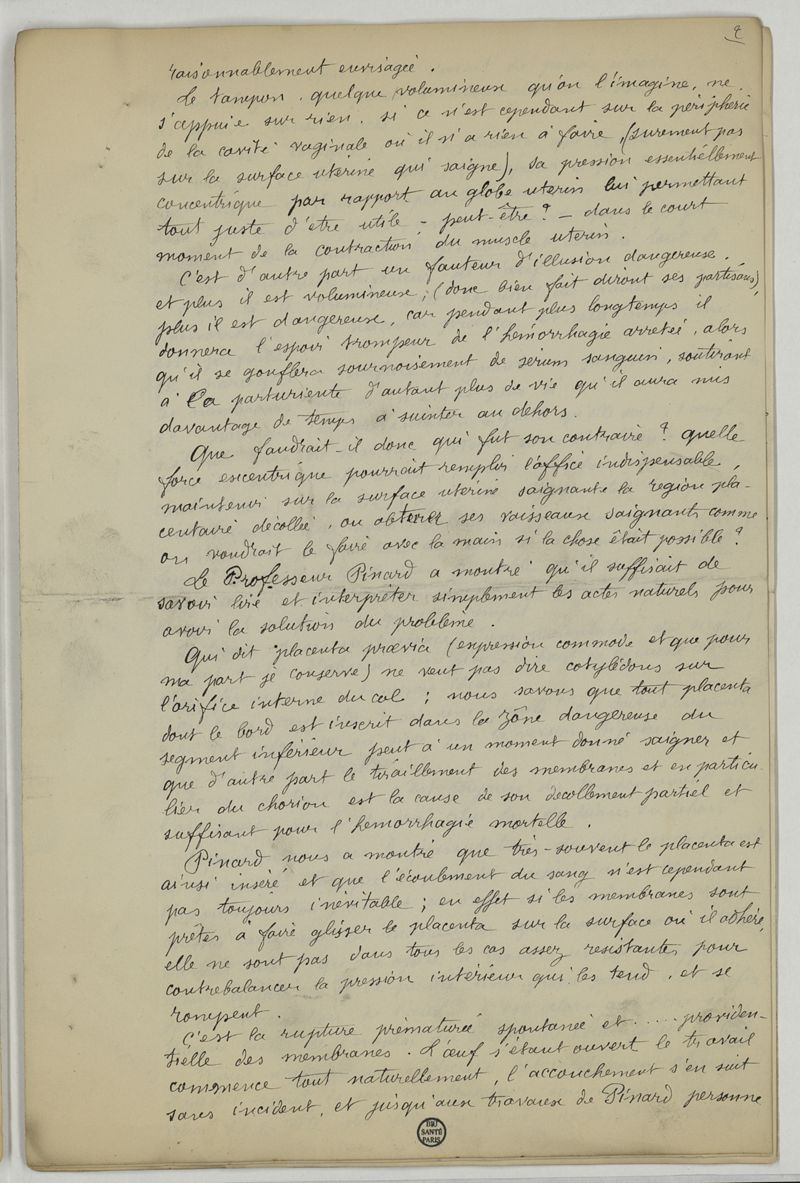 2
raisonnablement envisagée.
Le tampon, quelque volumineux qu'on l'imagine, ne
s'appuie sur rien, si ce n'est cependant sur la périphérie
de la cavité vaginale où il n'a rien à faire, (surement pas
sur la surface utérine qui saigne), sa pression essentiellement
concentrique par rapport au globe uterin lui permettant
tout juste d'être utile - peut-être? - dans le court
moment de la contraction du muscle uterin.
C'est d'autre part un fauteur d'illusion dangereuse,
et plus il est volumineux, (donc bien fait diront ses partisans),
plus il est dangereux, car pendant plus longtemps il
donnera l'espoir trompeur de l'hémorrhagie arretée, alors
qu'il se gonflera sournoisement de sérum sanguin, soutirant
à la parturiente d'autant plus de vie qu'il aura mis
davantage de temps à suinter au dehors.
Que faudrait-il donc qui fut son contraire? quelle
force excentrique pourrait remplir l'office indispensable,
maintenir sur la surface utérine saignante la region pla-
centaire décollée, ou obturer ses vaisseaux saignants comme
on voudrait le faire avec la main si la chose était possible?
Le Professeur Pinard a montré qu'il suffisait de
savoir lire et interpréter simplement les actes naturels pour
avoir la solution du problème.
Qui dit placenta prævia (expression commode et que pour
ma part je conserve) ne veut pas dire cotylédons sur
l'orifice interne du col; nous savons que tout placenta
dont le bord est inscrit dans la zône dangereuse du
segment inférieur peut à un moment donné saigner et
que d'autre part le tiraillement des membranes et en particu-
lier du chorion est la cause de son decollement partiel et
suffisant pour l'hemorrhagie mortelle.
Pinard nous a montré que très-souvent le placenta est
ainsi inséré et que l'écoulement du sang n'est cependant
pas toujours inévitable; en effet si les membranes sont
prêtes à faire glisser le placenta sur la surface où il adhère,
elle ne sont pas dans tous les cas assez resistantes pour
contrebalancer la pression intérieur qui les tend, et se
rompent.
C'est la rupture prématurée spontanée et ..... providen-
tielle des membranes. L'œuf s'étant ouvert le travail
commence tout naturellement, l'accouchement s'en suit
sans incident, et jusqu'aux travaux de Pinard personne
BIU
SANTÉ
PARIS